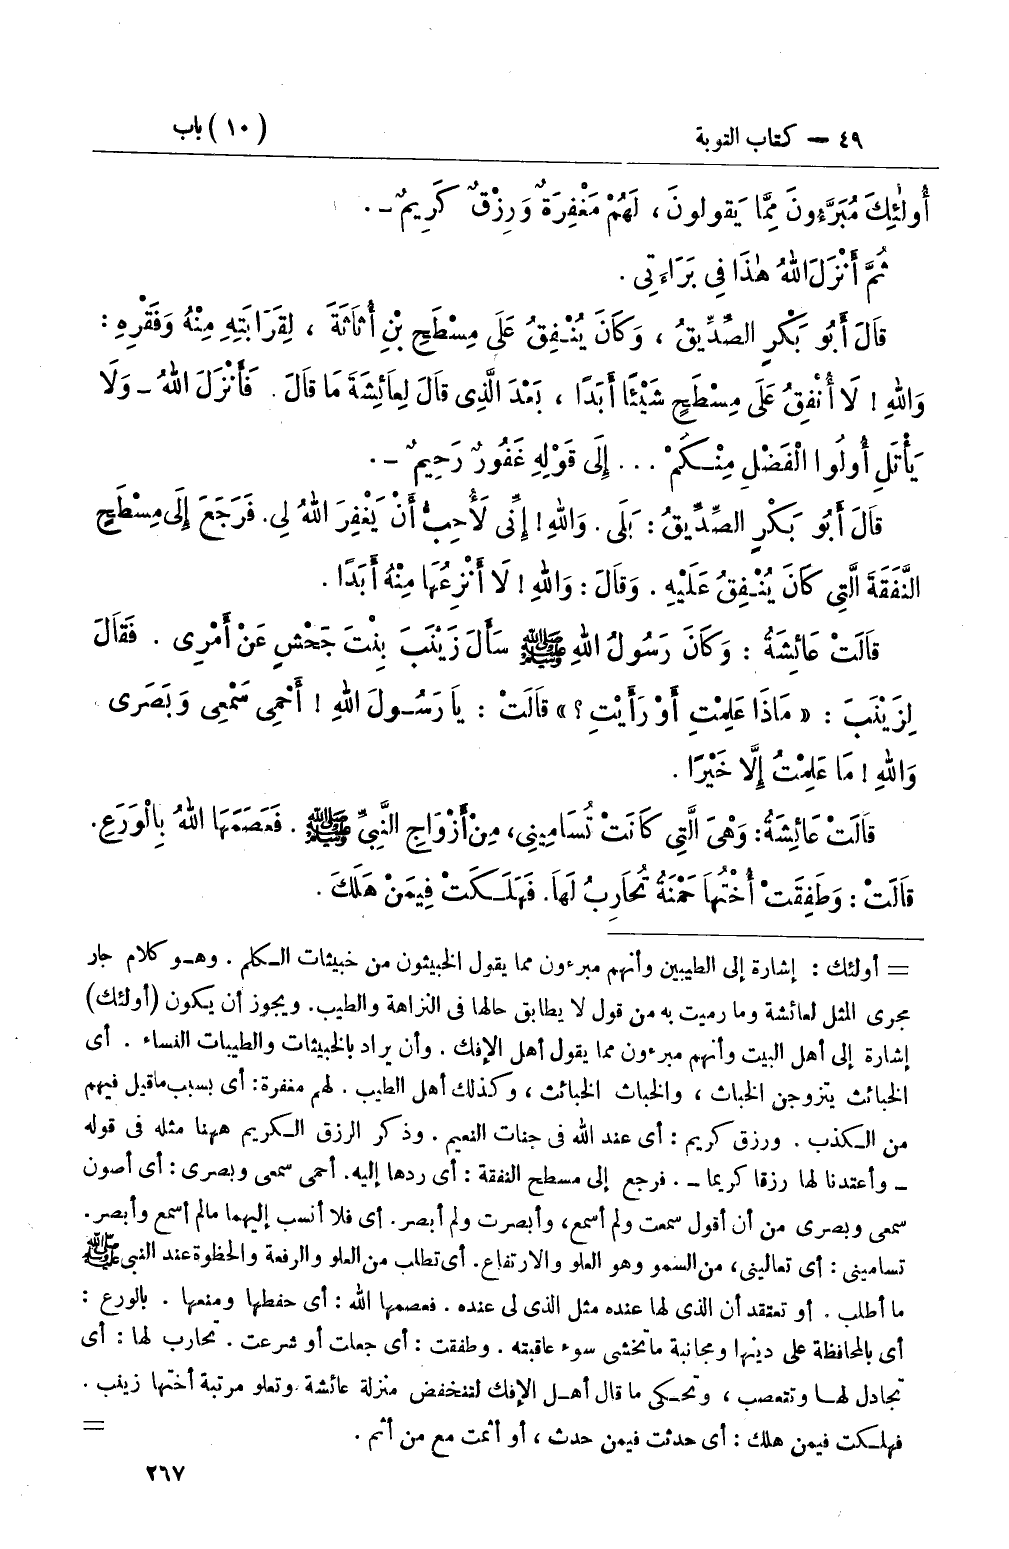 ٤٩ – كتاب التوبة (١٠) باب
أُولَٰئِكَ مُبَرَّءُونَ مِمَّا يَقُولونَ ، لَهُمْ مَغْفِرَةٌ وَرِزْقٌ كَرِيمٌ – .
ثُمَّ أَنْزَلَ اللهُ هٰذَا فِي بَرَاءَتِي .
قَالَ أَبُو بَكْرٍ الصِّدِّيقُ ، وَكَانَ يُنْفِقُ عَلَى مِسْطَحِ بْنِ أُثَاثَةَ ، لِقَرَابَتِهِ مِنْهُ وَفَقْرِهِ :
وَاللهِ ! لَا أُنْفِقُ عَلَى مِسْطَحٍ شَيْئًا أَبَدًا ، بَعْدَ الَّذِى قَالَ لِعَائِشَةَ مَا قَالَ . فَأَنْزَلَ اللهُ – وَلَا
يَأْتَلِ أُولُوا الْفَضْلِ مِنْكُمْ ... إِلَى قَوْلِهِ غَفُورٌ رَحِيمٌ – .
قَالَ أَبُو بَكْرٍ الصِّدِّيقُ : بَلَى . وَاللهِ ! إِنِّى لَأُحِبُّ أَنْ يَغْفِرَ اللهُ لِى . فَرَجَعَ إِلَى مِسْطَحٍ
النَّفَقَةَ الَّتِى كَانَ يُنْفِقُ عَلَيْهِ . وَقَالَ : وَاللهِ ! لَا أَنْزِعُهَا مِنْهُ أَبَدًا .
قَالَتْ عَائِشَةُ : وَكَانَ رَسُولُ اللهِ ﷺ سَأَلَ زَيْنَبَ بِنْتَ جَحْشٍ عَنْ أَمْرِى . فَقَالَ
لِزَيْنَبَ : « مَاذَا عَلِمْتِ أَوْ رَأَيْتِ ؟ » قَالَتْ : يَا رَسُولَ اللهِ ! أَحْمِى سَمْعِى وَبَصَرِى
وَاللهِ ! مَا عَلِمْتُ إِلَّا خَيْرًا .
قَالَتْ عَائِشَةُ : وَهْىَ الَّتِى كَانَتْ تُسَامِينِى ، مِنْ أَزْوَاجِ النَّبِىِّ ﷺ . فَعَصَمَهَا اللهُ بِالْوَرَعِ .
قَالَتْ : وَطَفِقَتْ أُخْتُهَا حَمْنَةُ تُحَارِبُ لَهَا . فَهَلَكَتْ فِيمَنْ هَلَكَ .
= أولئك : إشارة إلى الطيبين وأنهم مبرءون مما يقول الخبيثون من خبيثات الكلم . وهو كلام جار
مجرى المثل لعائشة وما رميت به من قول لا يطابق حالها فى النزاهة والطيب . ويجوز أن يكون (أولئك)
إشارة إلى أهل البيت وأنهم مبرءون مما يقول أهل الإفك . وأن يراد بالخبيثات والطيبات النساء . أى
الخبائث يتزوجن الخباث ، والخباث الخبائث ، وكذلك أهل الطيب . لهم مغفرة : أى بسبب ما قيل فيهم
من الكذب . ورزق كريم : أى عند الله فى جنات النعيم . وذكر الرزق الكريم ههنا مثله فى قوله
– وأعتدنا لها رزقا كريما – . فرجع إلى مسطح النفقة : أى ردها إليه . أحمى سمعى وبصرى : أى أصون
سمعى وبصرى من أن أقول سمعت ولم أسمع ، وأبصرت ولم أبصر . أى فلا أنسب إليهما مالم أسمع وأبصر .
تسامينى : أى تعالينى ، من السمو وهو العلو والارتفاع . أى تطلب من العلو والرفعة والحظوة عند النبى ﷺ
ما أطلب . أو تعتقد أن الذى لها عنده مثل الذى لى عنده . فعصمها الله : أى حفظها ومنعها . بالورع :
أى بالمحافظة على دينها ومجانبة ما تخشى سوء عاقبته . وطفقت : أى جعلت أو شرعت . تحارب لها : أى
تجادل لها وتتعصب ، وتحكى ما قال أهل الإفك لتنخفض منزلة عائشة وتعلو مرتبة أختها زينب .
فهلكت فيمن هلك : أى حدثت فيمن حدث ، أو أثمت مع من أثم . =
٢٦٧